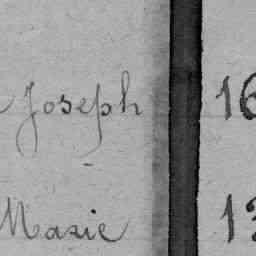 Joseph 16
Marie 13